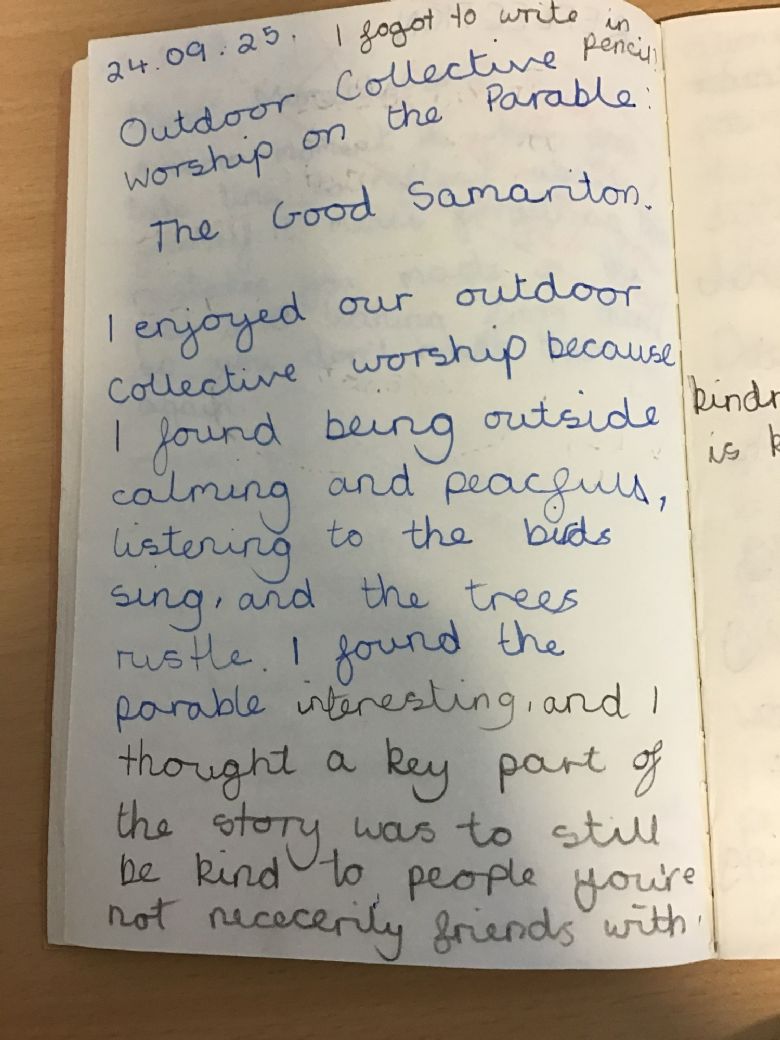 24.09.25. I fogot to write in
pencil!
Outdoor Collective
worship on the Parable:
The Good Samariton.
I enjoyed our outdoor
Collective worship because
I found being outside
calming and peacfull,
listening to the birds
sing, and the trees
rustle. I found the
parable interesting, and I
thought a key part of
the story was to still
be kind to people you're
not nececerily friends with.
is